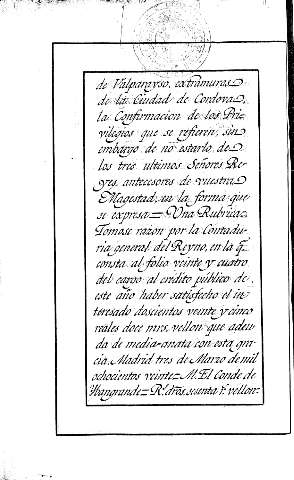 de Valparayso, extramuros
de la Ciudad de Cordova,
la Confirmacion de los Pri-
vilegios que se refieren, sin
embargo de no estarlo, de
los tres ultimos Señores Re-
yes, antecesores de vuestra
Magestad, en la forma que
se expresa = Una Rubrica =
Tomose razon por la Contadu-
ria general del Reyno, en la q.
consta al folio veinte y cuatro
del cargo al crédito público de
este año haber satisfecho el in-
teresado doscientos veinte y cinco
reales doce mrs. vellon que adeu-
da de media-anata con esta gra-
cia. Madrid tres de Marzo de mil
ochocientos veinte = M. El Conde de
= R. dros. sesenta r. vellon =